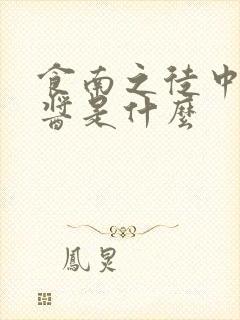 食南之徒中
醬是什麼
鳳炅